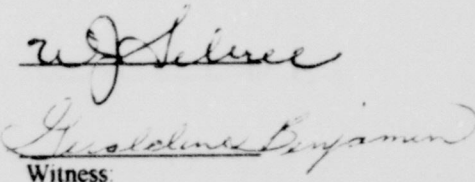 WJ Sebree
Geraldine Benjamin
Witness: